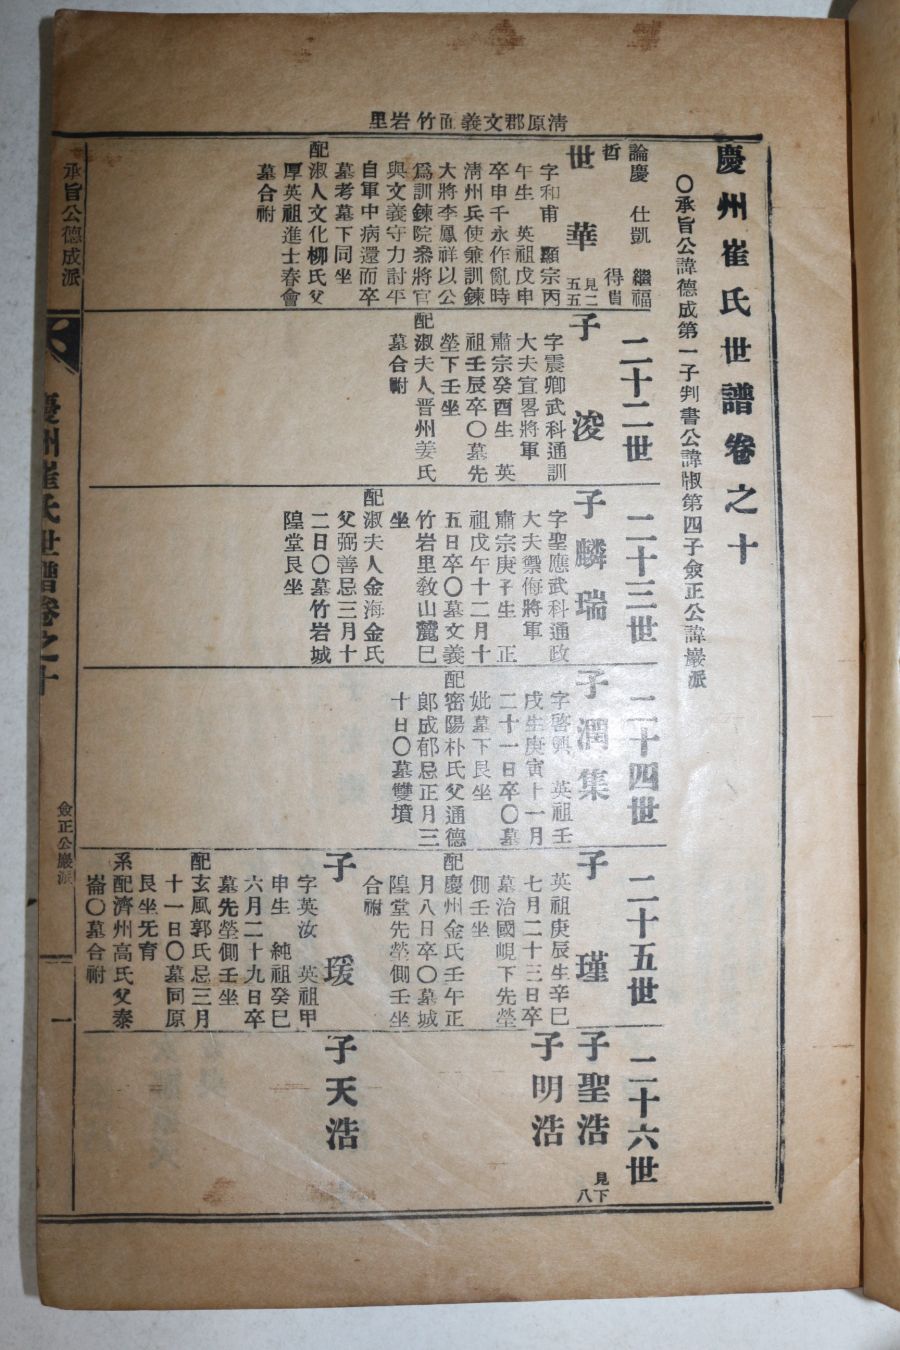 淸原郡文義面竹岩里
慶州崔氏世譜卷之十
〇承旨公諱德成第一子判書公諱椒第四子僉正公諱巖派
論慶 仕凱 繼福
哲 得
世華 見二五五
字和甫 顯宗丙
午生 英祖戊申
卒申千永作亂時
淸州兵使兼訓鍊
大將李鳳祥以公
爲訓鍊院叅將官
與文義守力討平
自軍中病還而卒
墓考墓下同坐
配淑人文化柳氏父
厚英祖進士春會
墓合祔
二十二世
子浚
字震卿武科通訓
大夫宣畧將軍
肅宗癸酉生 英
祖壬辰卒〇墓先
塋下壬坐
配淑夫人晋州姜氏
墓合祔
二十三世
子麟瑞
字聖應武科通政
大夫禦侮將軍
肅宗庚子生 正
祖戊午十二月十
五日卒〇墓文義
竹岩里敎山麓巳
坐
配淑夫人金海金氏
父弼善忌三月十
二日〇墓竹岩城
隍堂艮坐
二十四世
子潤集
字啓興 英祖壬
戌生庚寅十一月
二十一日卒〇墓
妣墓下艮坐
配密陽朴氏父通德
郞成郁忌正月三
十日〇墓雙墳
二十五世
子瑾
英祖庚辰生辛巳
七月二十三日卒
墓治國峴下先塋
側壬坐
配慶州金氏壬午正
月八日卒〇墓城
隍堂先塋側壬坐
合祔
子瑗
字英汝 英祖甲
申生 純祖癸巳
六月二十九日卒
墓先塋側壬坐
配玄風郭氏忌三月
十一日〇墓同原
艮坐旡育
系配濟州高氏父泰
崙〇墓合祔
二十六世
子聖浩 見下八
子明浩
子天浩
承旨公德成派
慶州崔氏世譜卷之十
僉正公巖派
一